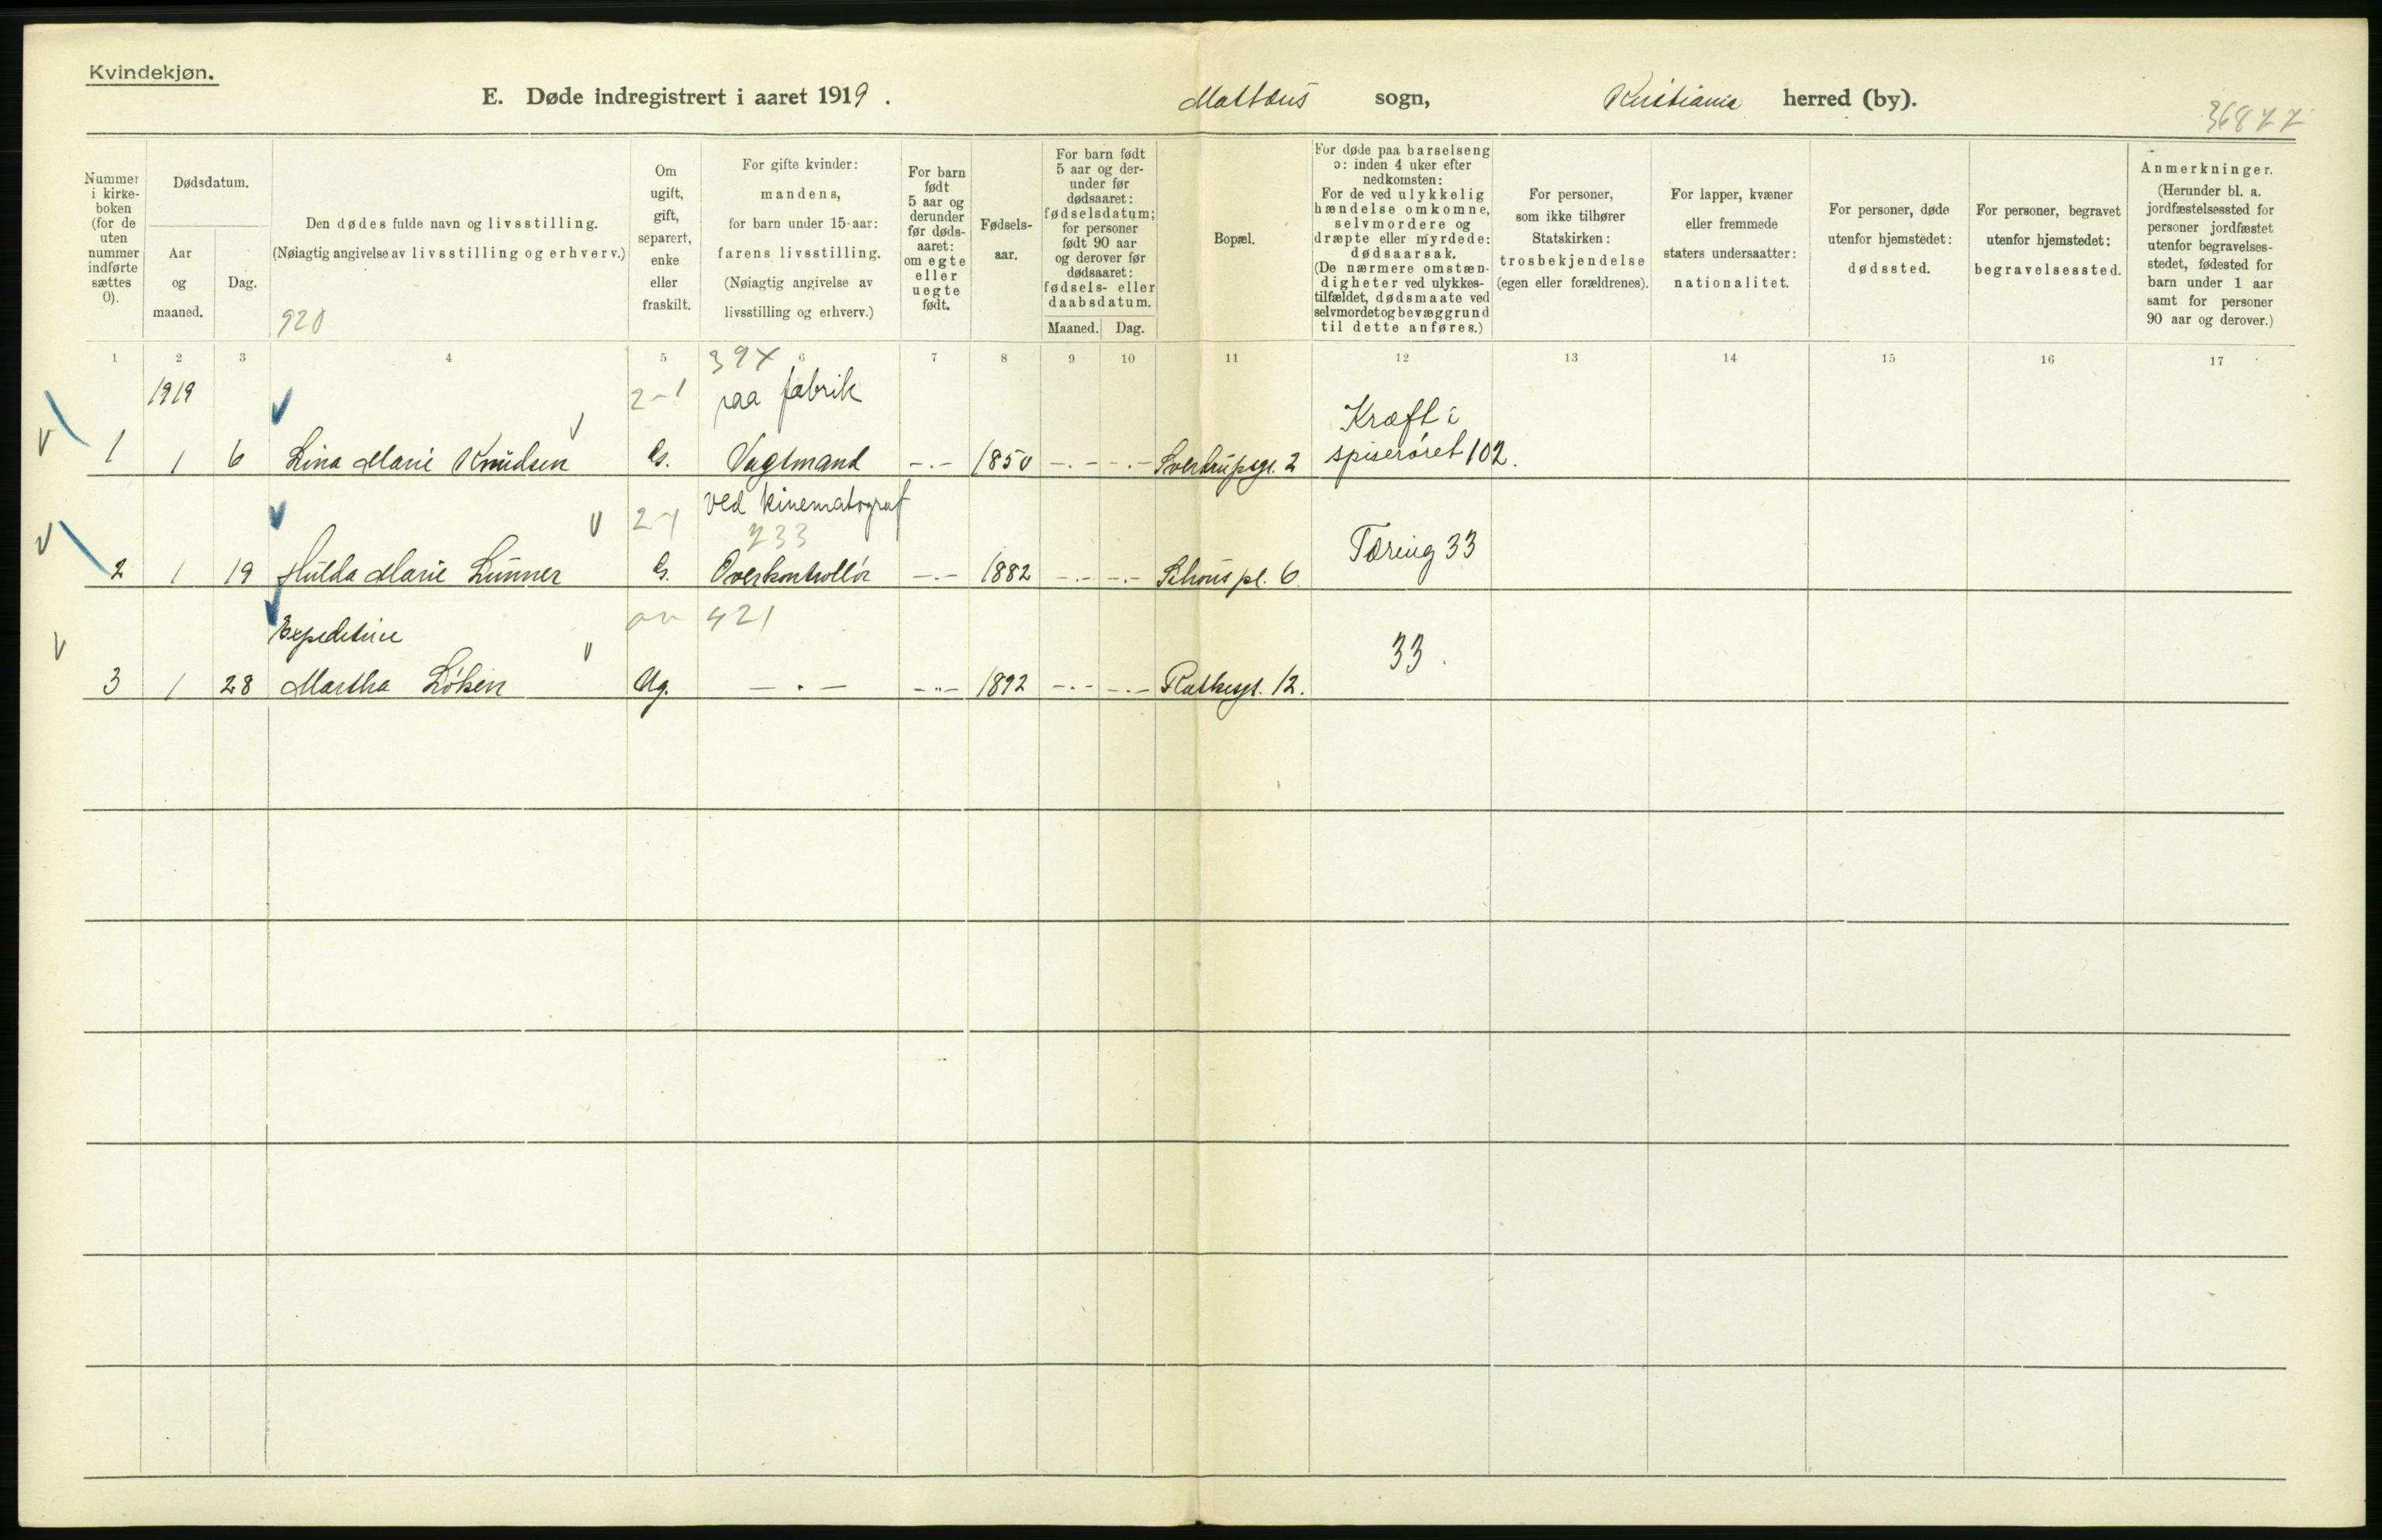 Kvindekjøn.
E. Døde indregistrert i aaret 1919.
Mattæus sogn, Kristiania herred (by).
36877
Nummer
i kirke-
boken
(for de
uten
nummer
indførte
sættes
0).
Dødsdatum.
Aar
og
maaned.
Dag.
Den dødes fulde navn og livsstilling.
(Nøiagtig angivelse av livsstilling og erhverv.)
920
Om
ugift,
gift,
separert,
enke
eller
fraskilt.
For gifte kvinder:
mandens,
for barn under 15 aar:
farens livsstilling.
(Nøiagtig angivelse av
livsstilling og erhverv.)
For barn
født
5 aar og
derunder
før døds-
aaret:
om egte
eller
uegte
født.
Fødsels-
aar.
For barn født
5 aar og der-
under før
dødsaaret:
fødselsdatum;
for personer
født 90 aar
og derover før
dødsaaret:
fødsels- eller
daabsdatum.
Maaned. Dag.
Bopæl.
For døde paa barselseng
ɔ: inden 4 uker efter
nedkomsten:
For de ved ulykkelig
hændelse omkomne,
selvmordere og
dræpte eller myrdede:
dødsaarsak.
(De nærmere omstæn-
digheter ved ulykkes-
tilfældet, dødsmaate ved
selvmordet og bevæggrund
til dette anføres.)
For personer,
som ikke tilhører
Statskirken:
trosbekjendelse
(egen eller forældrenes).
For lapper, kvæner
eller fremmede
staters undersaatter:
nationalitet.
For personer, døde
utenfor hjemstedet:
dødssted.
For personer, begravet
utenfor hjemstedet:
begravelsessted.
Anmerkninger.
(Herunder bl. a.
jordfæstelsessted for
personer jordfæstet
utenfor begravelses-
stedet, fødested for
barn under 1 aar
samt for personer
90 aar og derover.)
1 2 3 4 5 6 7 8 9 10 11 12 13 14 15 16 17
39X
1919 2-1 paa fabrik Kræft i
1 1 6 Lina Marie Knudsen G. Vagtmand -.- 1850 -.- -.- Sverdrupsgt. 2 spiserøret 102.
2-1 ved kinematograf
233
2 1 19 Hulda Marie Lunner G. Overkontrollør -.- 1882 -.- -.- Schous pl. 6. Tæring 33
Expeditrice 421
3 1 28 Martha Løken Ug. -.- -.- 1892 -.- -.- Rathkesgt. 12. 33.